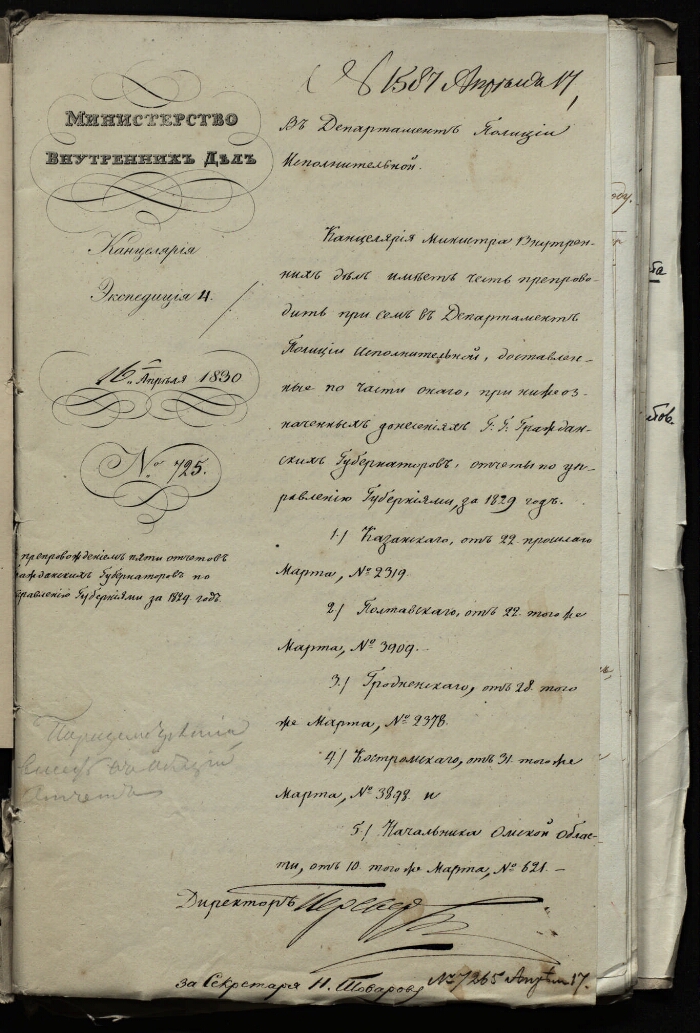 1587 Апрѣля 17
Министерство
Внутреннихъ Дѣлъ
Канцелярія
Экспедиція 4.
16 Апрѣля 1830
№ 725.
препровожденіемъ пяти отчетовъ
Гражданскихъ Губернаторовъ по
управленію Губерніями за 1829 годъ.
Въ Департаментъ Полиціи
Исполнительной.
Канцелярія Министра Внутрен-
нихъ дѣлъ имѣетъ честь препрово-
дить при семъ въ Департаментъ
Полиціи Исполнительной, доставлен-
ные по части онаго, при нижеоз-
наченныхъ донесеніяхъ Г. Г. Граждан-
скихъ Губернаторовъ, отчеты по уп-
равленію Губерніями, за 1829 годъ.
1.) Казанскаго, отъ 22 прошлаго
Марта, № 2319.
2.) Полтавскаго, отъ 22 того же
Марта, № 3909.
3.) Гродненскаго, отъ 28 того
же Марта, № 2378.
4.) Костромскаго, отъ 31 того же
Марта, № 3898. и
5.) Начальника Омской Облас-
ти, отъ 10 того же Марта, № 621.
Директоръ
за Секретаря Н. Товаровъ
№ 7265 Апрѣля 17.